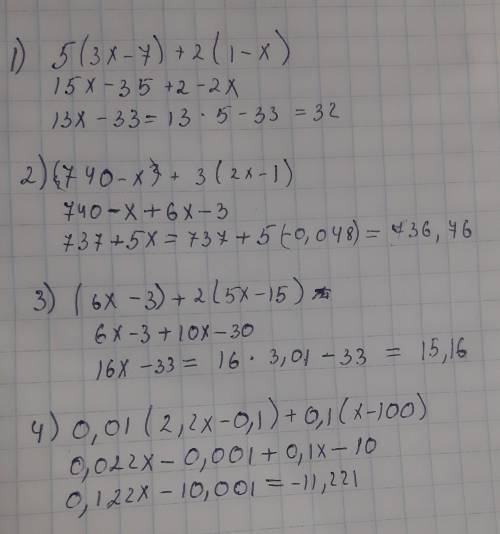 1) 5(3x-7)+2(1-x)
15x-35+2-2x
13x-33=13·5-33=32
2) (740-x)+3(2x-1)
740-x+6x-3
737+5x=737+5(-0,048)=736,76
3) (6x-3)+2(5x-15)
6x-3+10x-30
16x-33=16·3,01-33=15,16
4) 0,01(2,2x-0,1)+0,1(x-100)
0,022x-0,001+0,1x-10
0,122x-10,001=-11,221